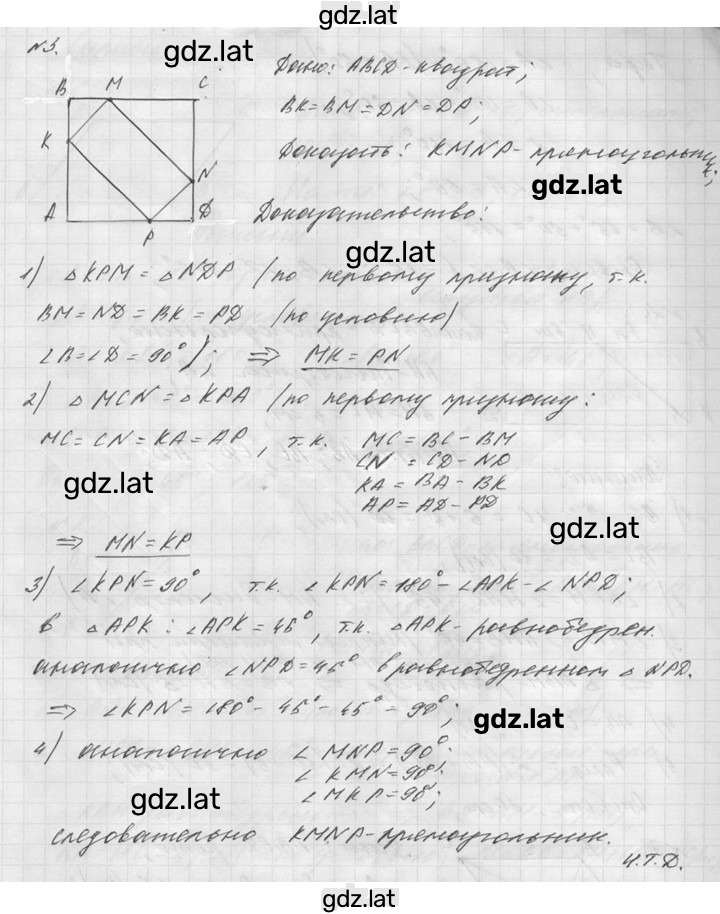 gdz.lat
N3.
gdz.lat
Дано: ABCD-квадрат;
B M C
BK=BM=DN=DP;
K
Доказать: KMNP-прямоугольник;
N
gdz.lat
A P D
Доказательство:
gdz.lat
1) △KPM = △NDP /по первому признаку, т.к.
BM=ND=BK=PD /по условию/
∠B=∠D=90°); ⇒ MK=PN
2) △MCN=△KPA /по первому признаку:
MC=CN=KA=AP, т.к. MC=BC-BM
CN=CD-ND
gdz.lat
KA=BA-BK
AP=AD-PD
gdz.lat
⇒ MN=KP
3) ∠KPN=90°, т.к. ∠KPN=180°-∠APK-∠NPD;
в △APK: ∠APK=45°, т.к. △APK-равнобедрен.
аналогично ∠NPD=45° в равнобедренном △NPD.
⇒ ∠KPN=180°-45°-45°=90°;
gdz.lat
4) аналогично ∠MNP=90°;
∠KMN=90°;
gdz.lat
∠MKP=90°;
следовательно KMNP-прямоугольник.
Ч.Т.Д.
gdz.lat